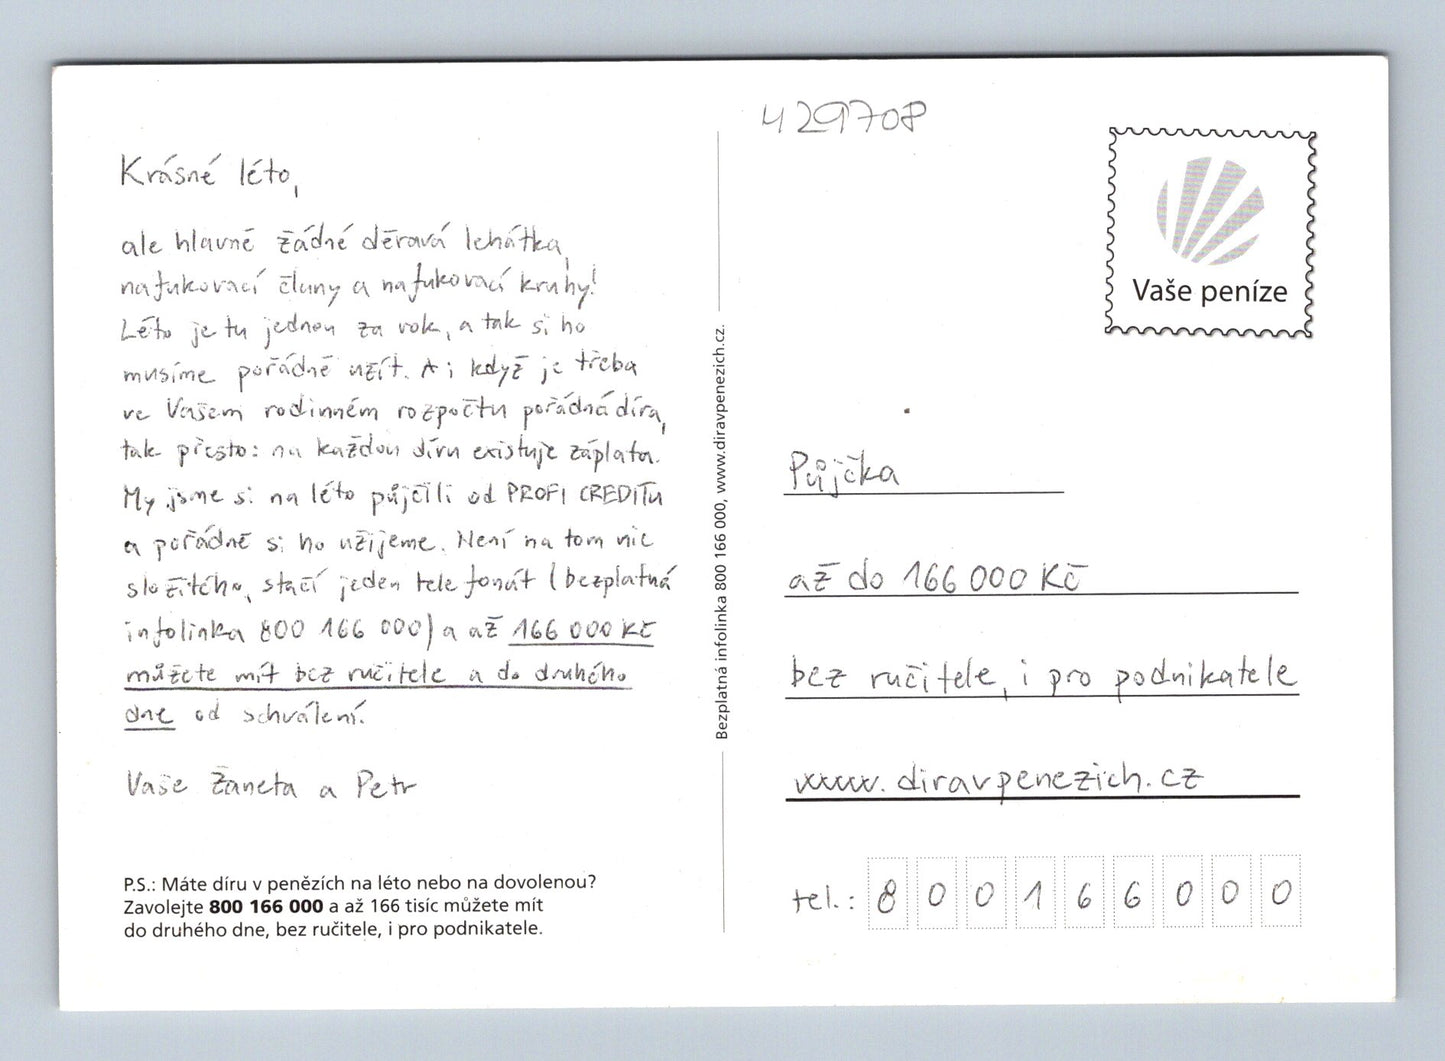 429708
Krásné léto,
ale hlavně žádné děravá lehátka,
nafukovací čluny a nafukovací kruhy!
Léto je tu jednou za rok, a tak si ho
musíme pořádně užít. A i když je třeba
ve Vašem rodinném rozpočtu pořádná díra,
tak přesto: na každou díru existuje záplata.
My jsme si na léto půjčili od PROFI CREDITu
a pořádně si ho užijeme. Není na tom nic
složitého, stačí jeden telefonát (bezplatná
infolinka 800 166 000) a až 166 000 Kč
můžete mít bez ručitele a do druhého
dne od schválení.
Vaše Žaneta a Petr
P.S.: Máte díru v penězích na léto nebo na dovolenou?
Zavolejte 800 166 000 a až 166 tisíc můžete mít
do druhého dne, bez ručitele, i pro podnikatele.
Bezplatná infolinka 800 166 000, www.diravpenezich.cz.
Vaše peníze
Půjčka
až do 166 000 Kč
bez ručitele, i pro podnikatele
www.diravpenezich.cz
tel.: 800166000